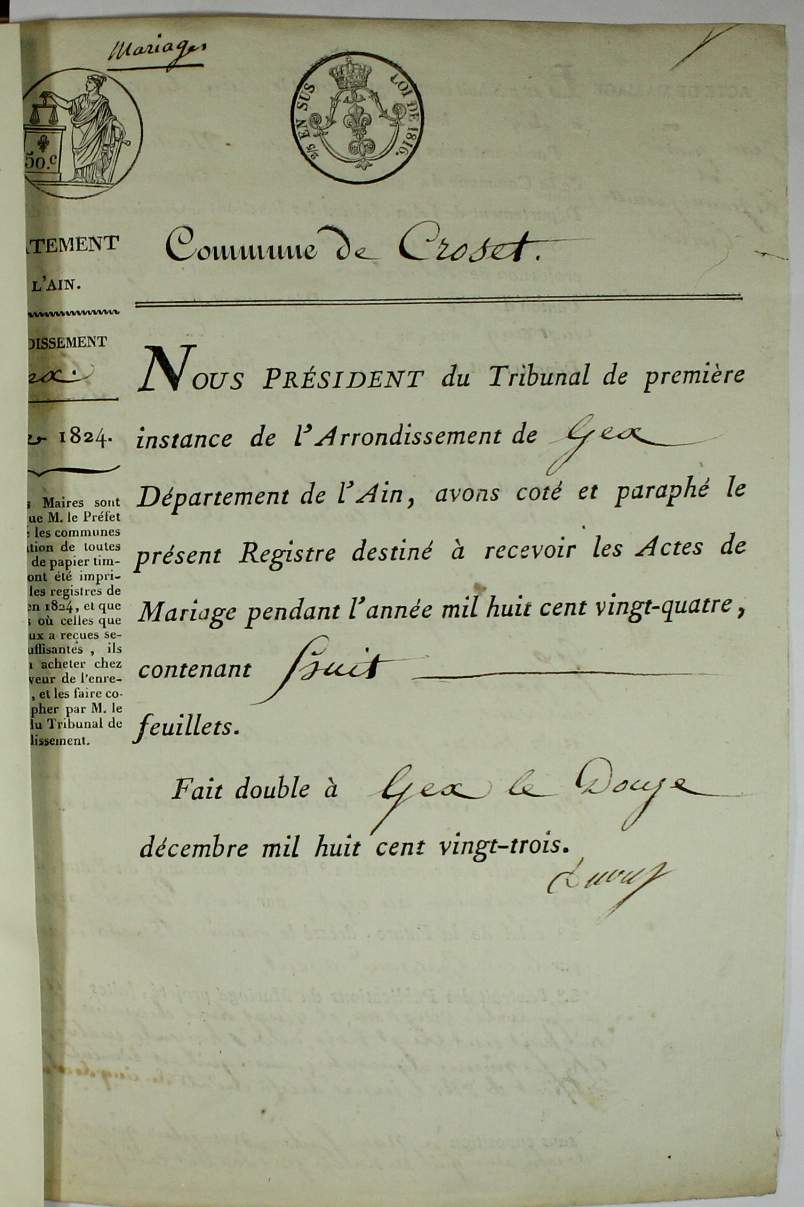 Mariages
50.c
2/5 EN SUS LOI DE 1816.
TEMENT
L'AIN.
DISSEMENT
ex.
1824.
Maires sont
ue M. le Préfet
les communes
tion de toutes
de papier tim-
ont été impri-
les registres de
en 1824, et que
où celles que
ux a reçues se-
uffisantes, ils
acheter chez
veur de l'enre-
, et les faire co-
pher par M. le
du Tribunal de
dissement.
Commune de Croset.
NOUS PRÉSIDENT du Tribunal de première
instance de l'Arrondissement de Gex
Département de l'Ain, avons coté et paraphé le
présent Registre destiné à recevoir les Actes de
Mariage pendant l'année mil huit cent vingt-quatre,
contenant huit
feuillets.
Fait double à Gex le Douze
décembre mil huit cent vingt-trois.